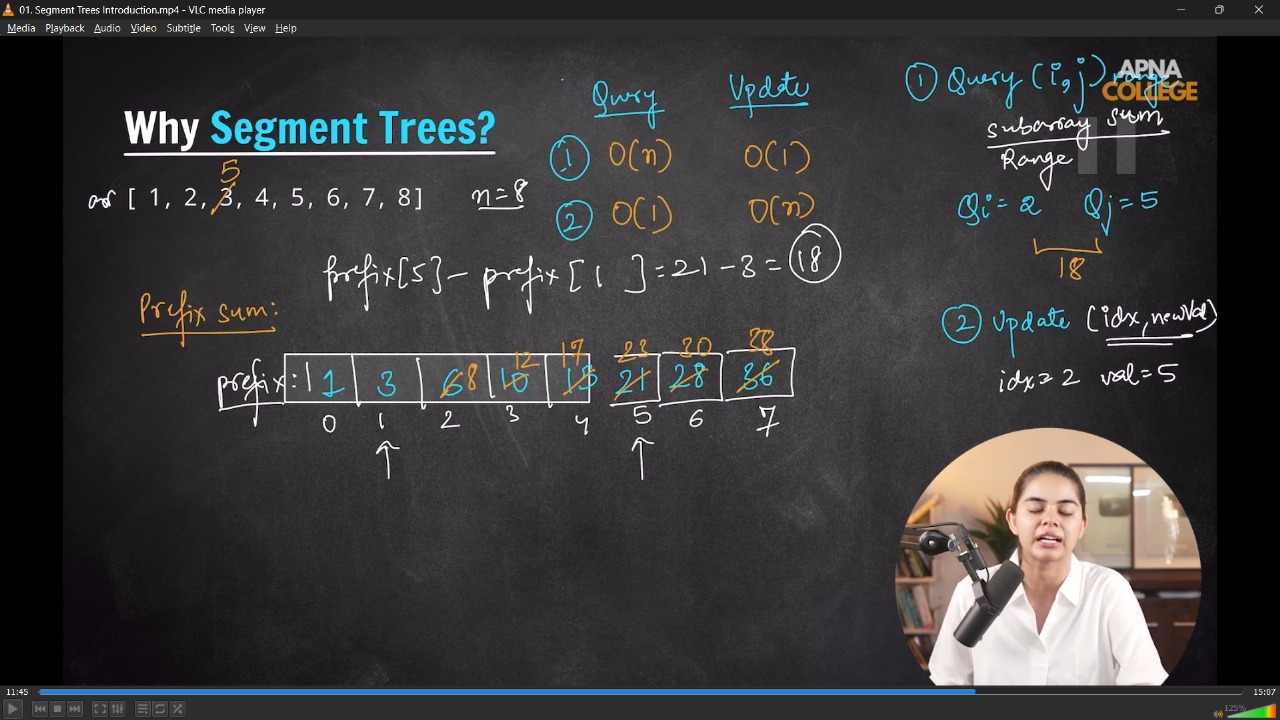 01. Segment Trees Introduction.mp4 - VLC media player
Media Playback Audio Video Subtitle Tools View Help
Why Segment Trees?
5
arr [ 1, 2, 3, 4, 5, 6, 7, 8] n=8
Query Update
1 O(n) O(1)
2 O(1) O(n)
prefix[5] - prefix[1 ] = 21 - 3 = 18
Prefix sum:
12 17 23 30 38
prefix: 1 3 6 8 10 15 21 28 36
0 1 2 3 4 5 6 7
APNA
COLLEGE
1 Query (i,j) range
subarray sum
Range
Qi = 2 Qj = 5
18
2 Update (idx, newVal)
idx = 2 val = 5
11:45 15:07
125%